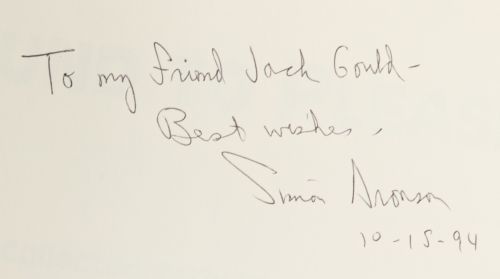 To my friend Jack Gould-
Best wishes,
Simon Aronson
10-15-94